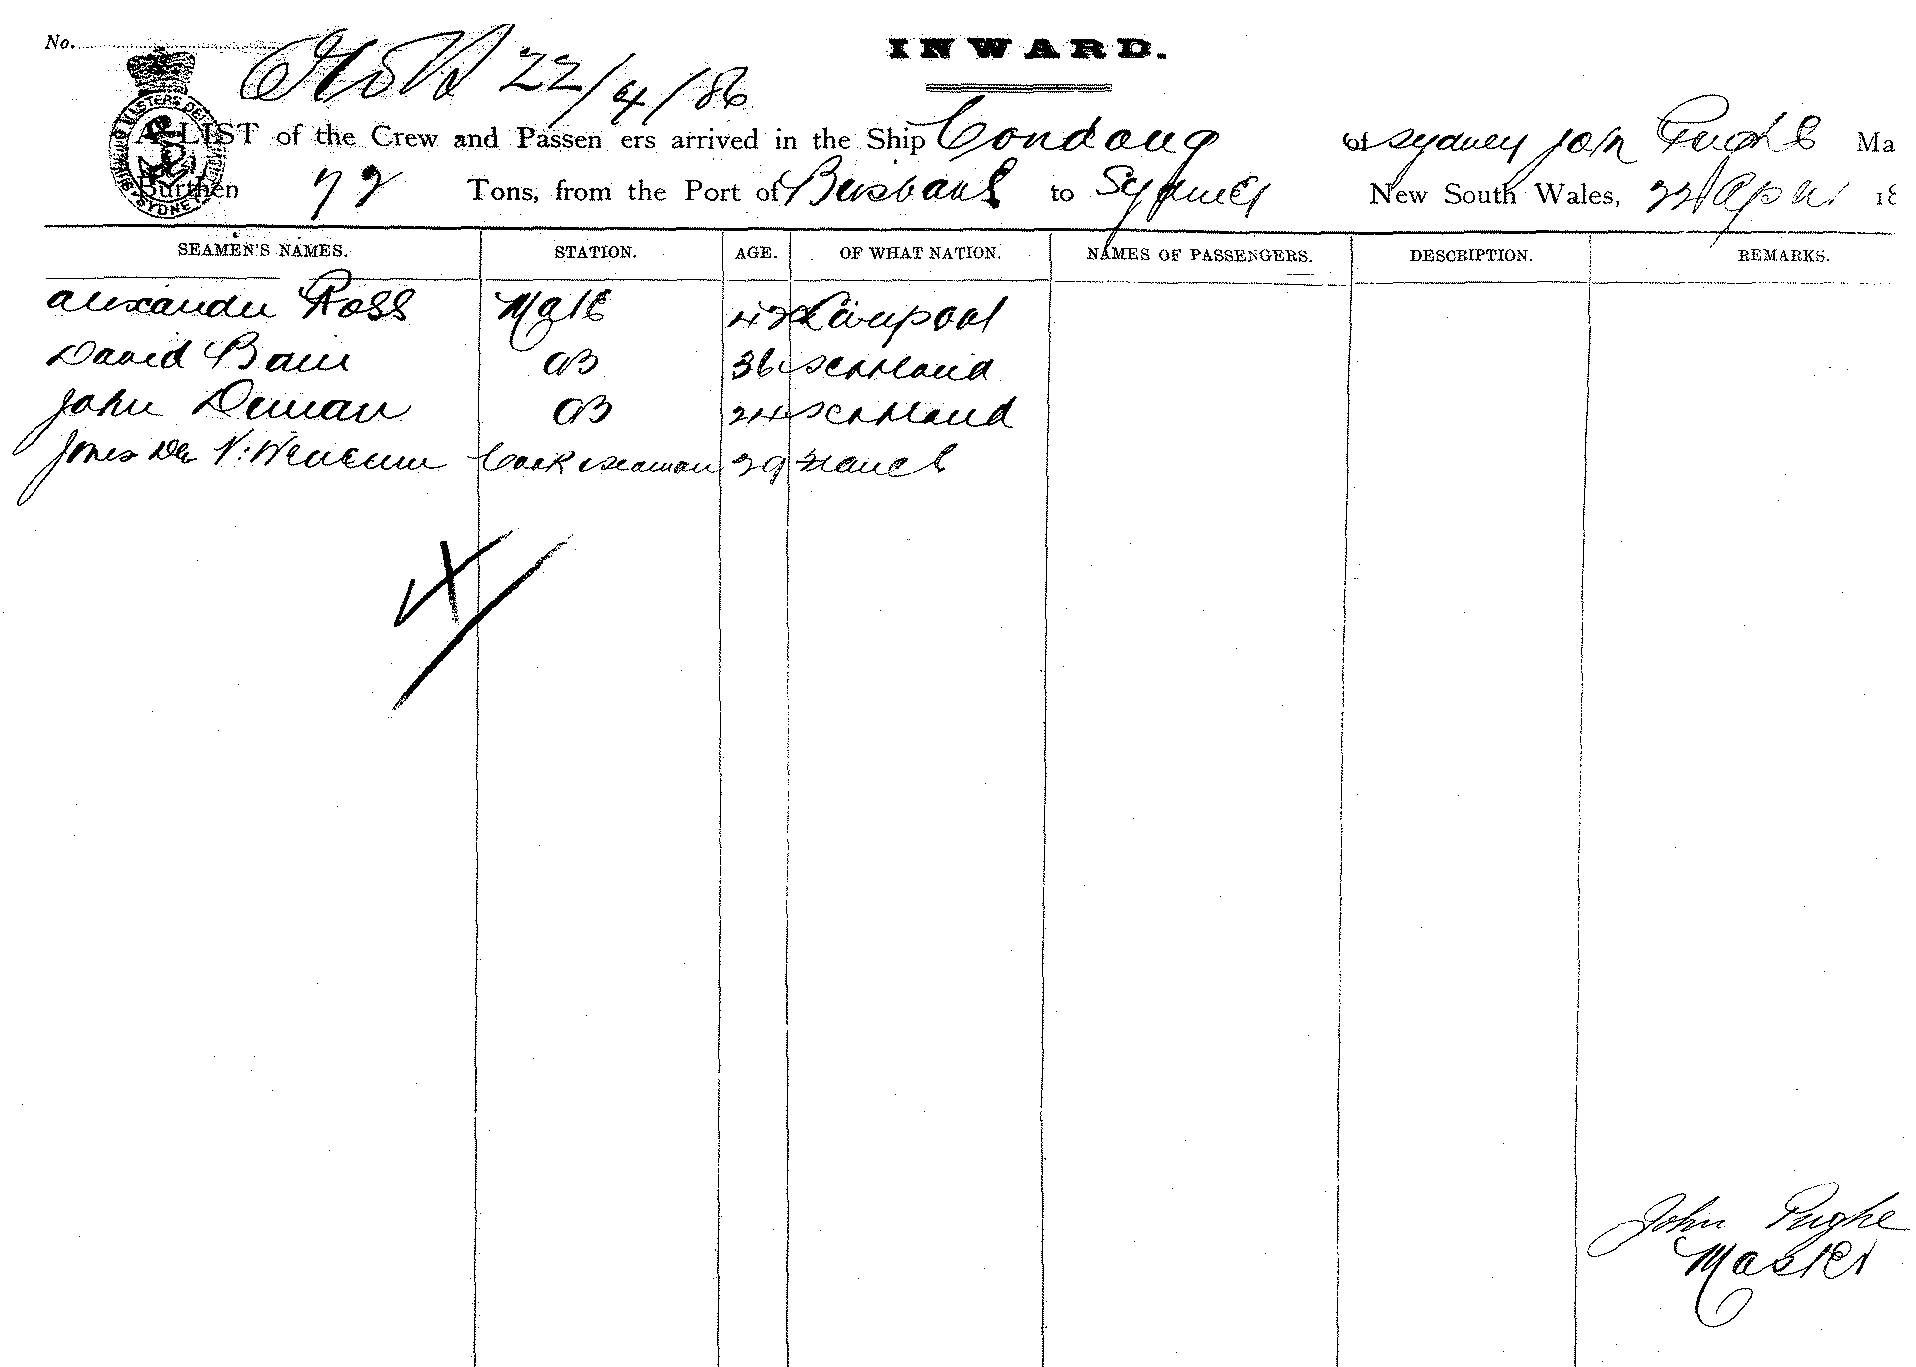 No.
INWARD.
22/4/86
A LIST of the Crew and Passen ers arrived in the Ship Condong of Sydney John Pughe Ma
Burthen 72 Tons, from the Port of Brisbane to Sydney New South Wales, 22 April 18
SEAMEN'S NAMES. STATION. AGE. OF WHAT NATION. NAMES OF PASSENGERS. DESCRIPTION. REMARKS.
Alexander Ross Mate 42 Liverpool
David Bain AB 36 Scotland
John AB 24 Scotland
Cook & seaman 29 France
John Pughe
Master